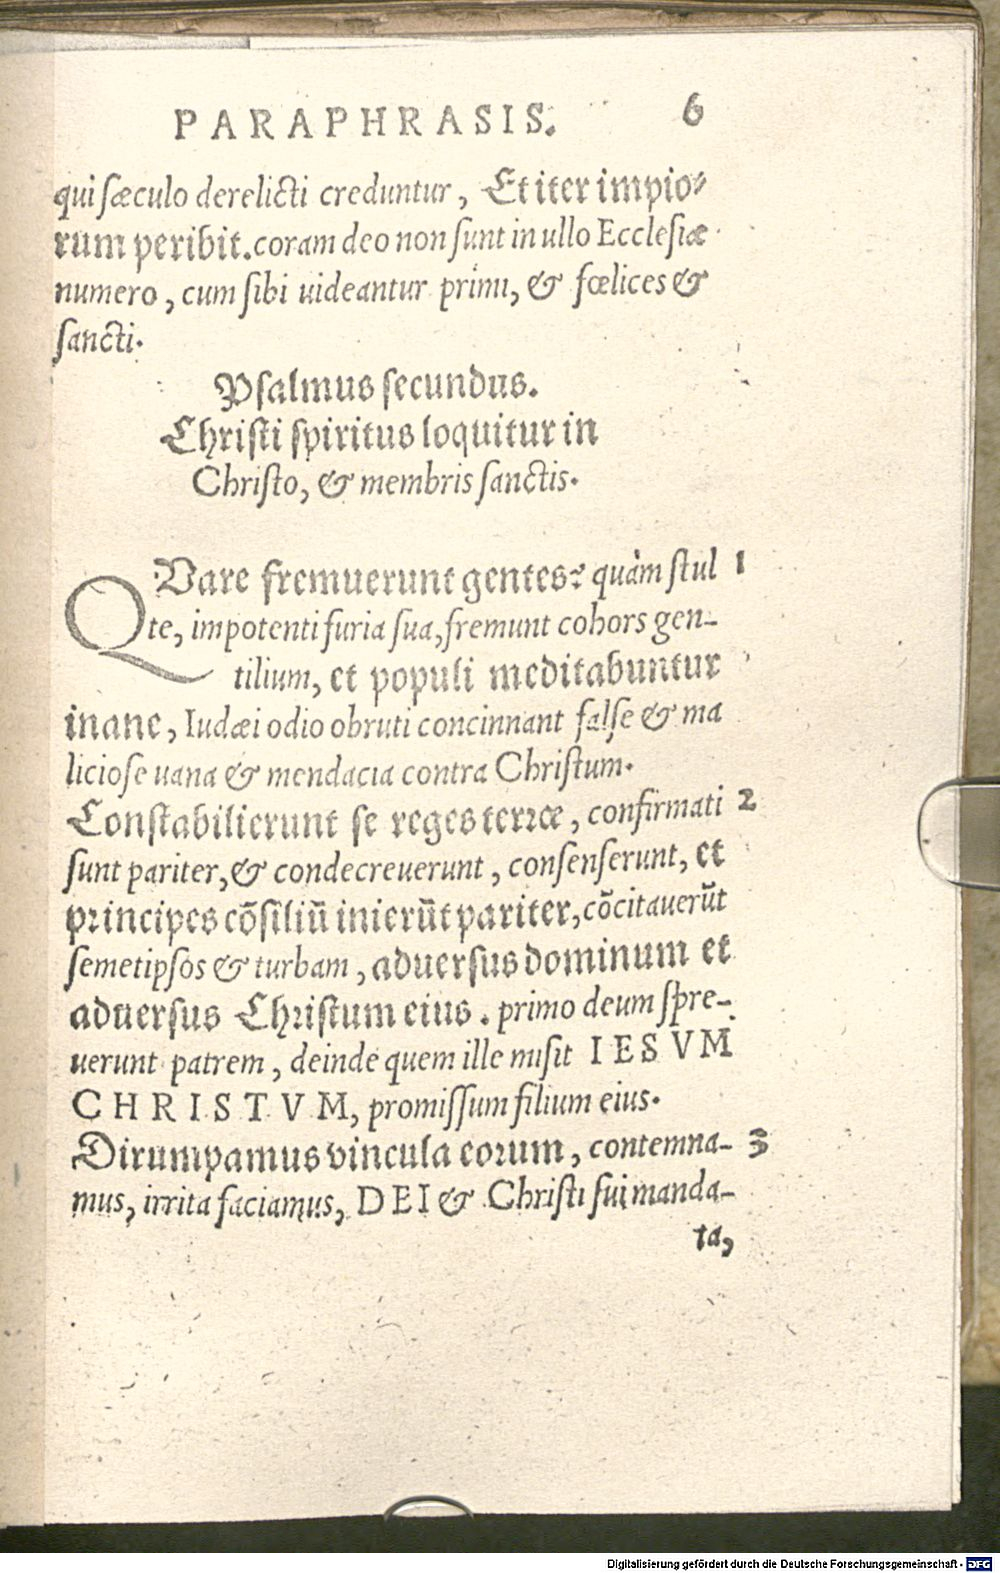 PARAPHRASIS. 6
qui sæculo derelicti creduntur, Et iter impio⸗
rum peribit. coram deo non sunt in ullo Ecclesiæ
numero, cum sibi uideantur primi, & fœlices &
sancti.
Psalmus secundus.
Christi spiritus loquitur in
Christo, & membris sanctis.
QVare fremuerunt gentes? quàm stul 1
te, impotenti furia sua, fremunt cohors gen-
tilium, et populi meditabuntur
inane, Iudæi odio obruti concinnant false & ma
liciose uana & mendacia contra Christum.
Constabilierunt se reges terræ, confirmati 2
sunt pariter, & condecreuerunt, consenserunt, et
principes cõsiliũ inierũt pariter, cõcitauerũt
semetipsos & turbam, aduersus dominum et
aduersus Christum eius. primo deum spre-
uerunt patrem, deinde quem ille misit IESVM
CHRISTVM, promissum filium eius.
Dirumpamus vincula eorum, contemna- 3
mus, irrita faciamus, DEI & Christi sui manda-
ta,
Digitalisierung gefördert durch die Deutsche Forschungsgemeinschaft - DFG